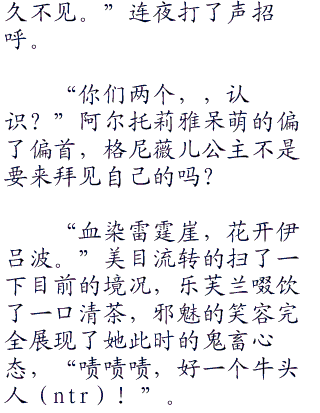 久不见。”连夜打了声招
呼。
“你们两个，，认
识？”阿尔托莉雅呆萌的偏
了偏首，格尼薇儿公主不是
要来拜见自己的吗？
“血染雷霆崖，花开伊
吕波。”美目流转的扫了一
下目前的境况，乐芙兰啜饮
了一口清茶，邪魅的笑容完
全展现了她此时的鬼畜心
态，“啧啧啧，好一个牛头
人（ntr）！”。